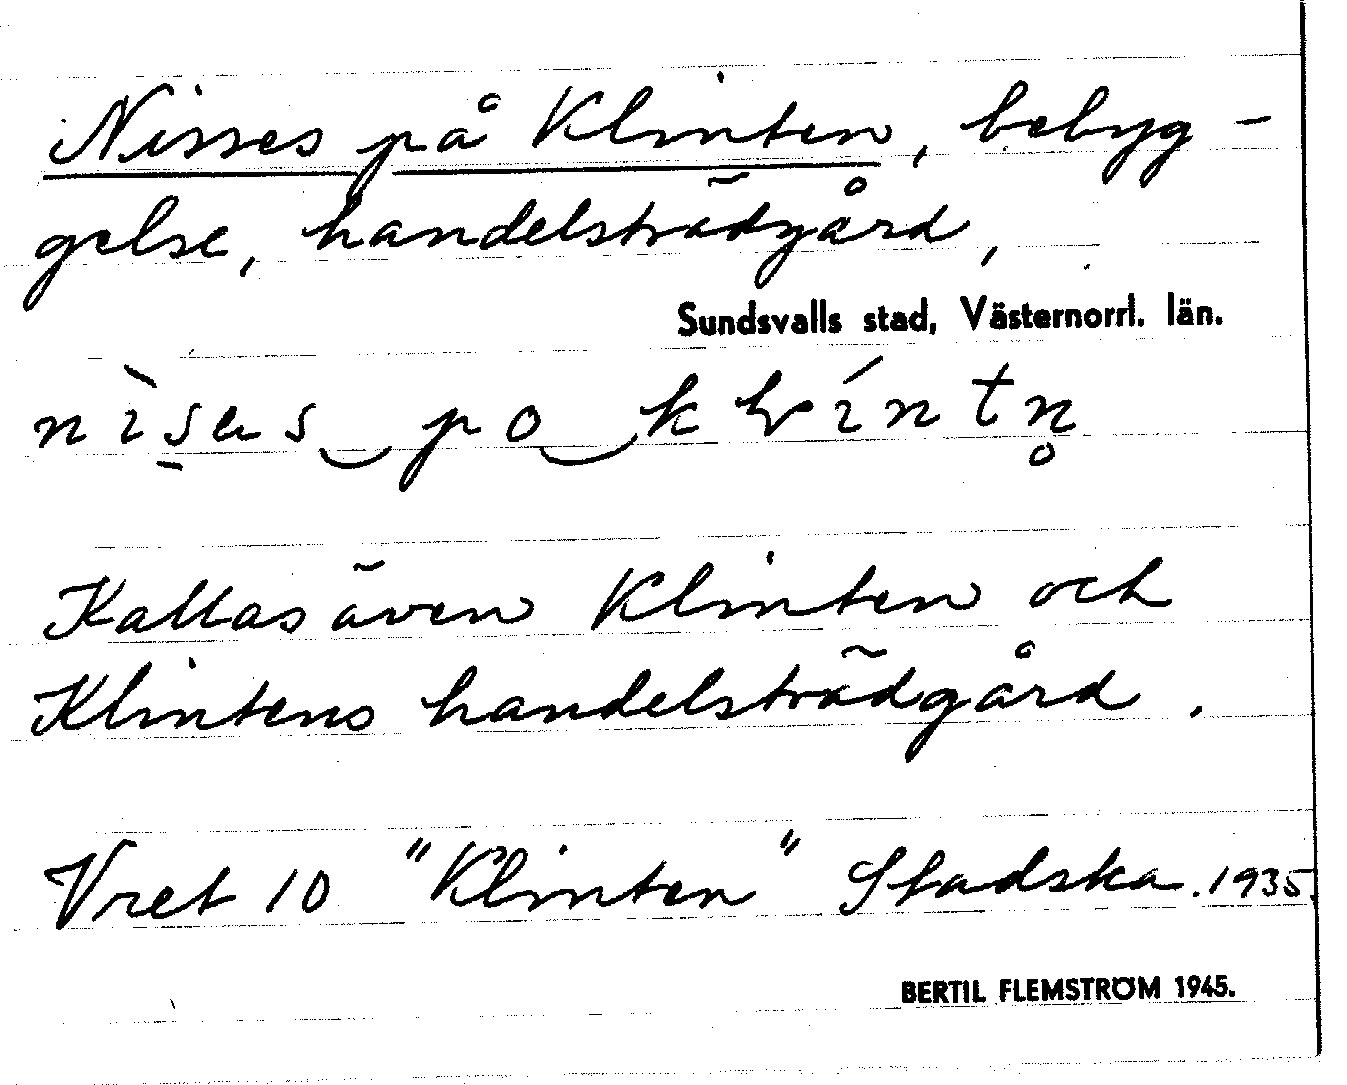 Nisses på Klinten, bebyg-
gelse, handelsträdgård,
Sundsvalls stad, Västernorrl. län.
Kallas även Klinten och
Klintens handelsträdgård.
Vret 10 "Klinten" Stadska. 1935.
BERTIL FLEMSTRÖM 1945.